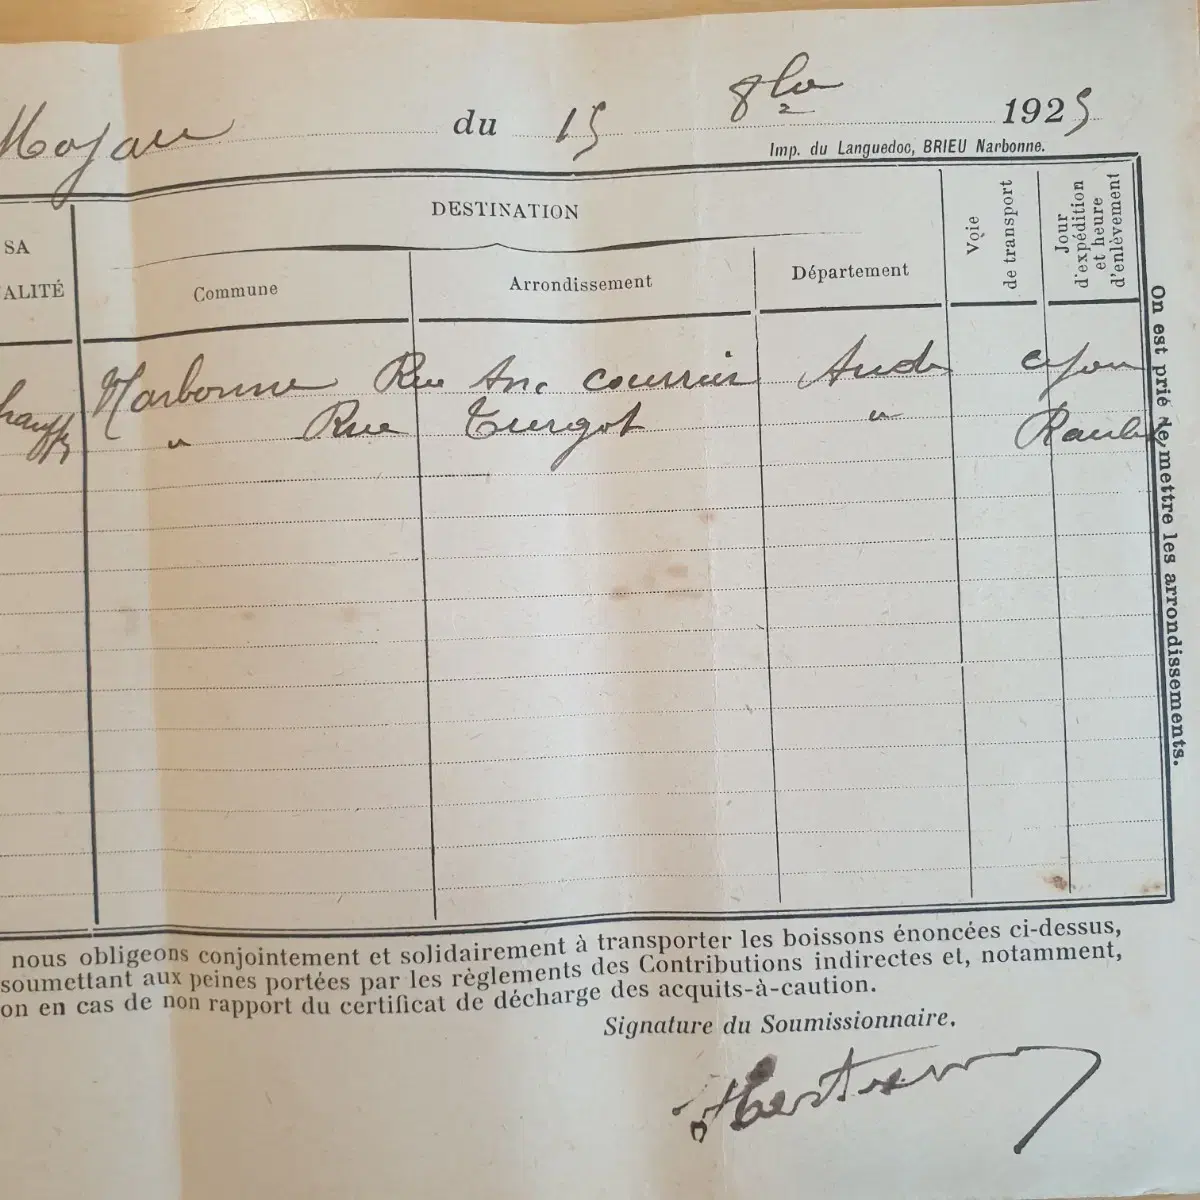 du 15 8bre 1925
Imp. du Languedoc, BRIEU Narbonne.
SA
ALITÉ
DESTINATION
Commune
Arrondissement
Département
Voie
de transport
Jour
d'expédition
et heure
d'enlèvement
Narbonne Rue Anc courrier Aude
" Rue Turgot "
On est prié de mettre les arrondissements.
nous obligeons conjointement et solidairement à transporter les boissons énoncées ci-dessus,
soumettant aux peines portées par les règlements des Contributions indirectes et, notamment,
on en cas de non rapport du certificat de décharge des acquits-à-caution.
Signature du Soumissionnaire.